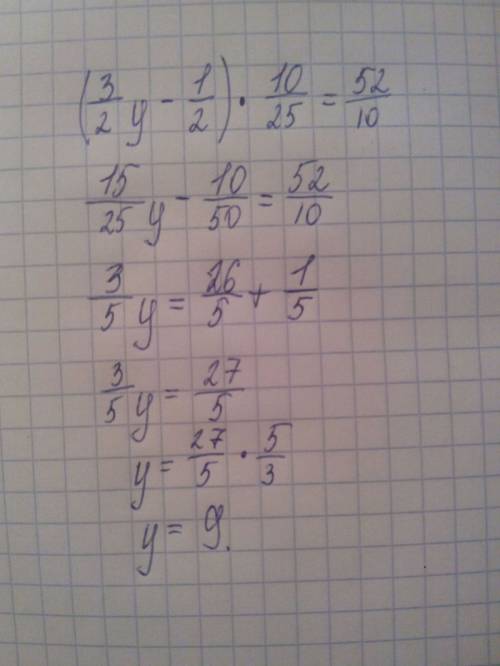 (3/2 y - 1/2) · 10/25 = 52/10
15/25 y - 10/50 = 52/10
3/5 y = 26/5 + 1/5
3/5 y = 27/5
y = 27/5 · 5/3
y = 9.